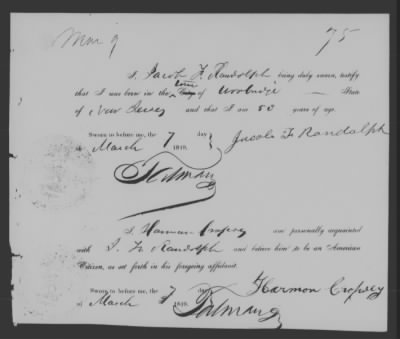 Mar 9
75
I, Jacob F. Randolph being duly sworn, testify
that I was born in the Town of Woodbridge — State
of New Jersey and that I am 50 years of age.
Sworn to before me, the 7 day
of March 1849.
Jacob F Randolph
I, Harmon Cropsey am personally acquainted
with J. F. Randolph and believe him to be an American
Citizen, as set forth in his foregoing affidavit.
Sworn to before me, the 7 day
of March 1849.
Harmon Cropsey